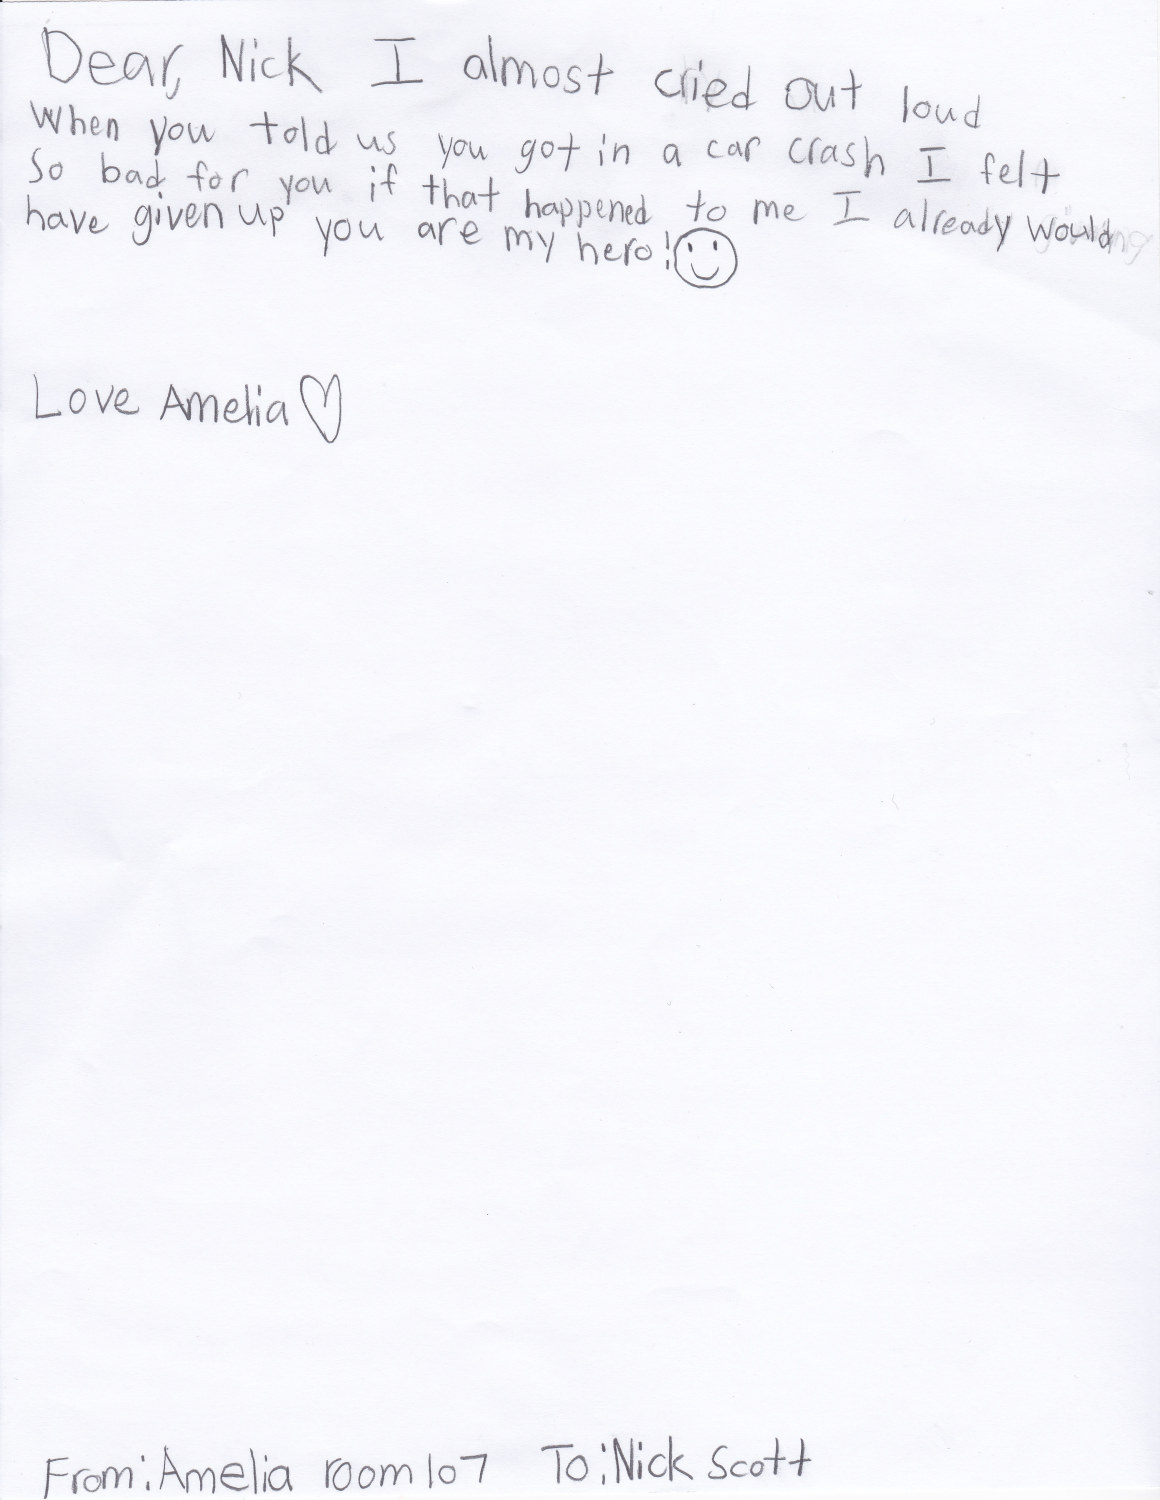 Dear, Nick I almost cried out loud
When you told us you got in a car crash I felt
So bad for you if that happened to me I already would
have given up you are my hero!
Love Amelia
From: Amelia room 107 To: Nick Scott